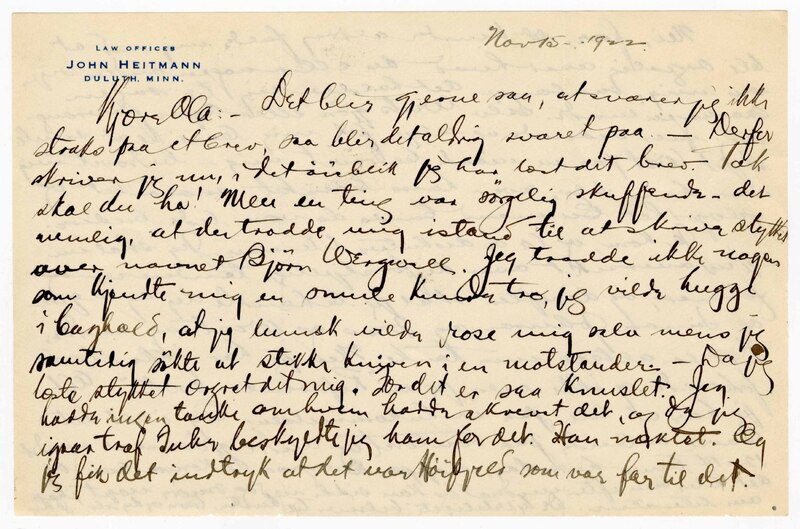 Nov 15 - 1922
LAW OFFICES
JOHN HEITMANN
DULUTH, MINN.
Kjære Ola: - Det blir gjerne saa, at svarer jeg ikke
straks paa et brev, saa blir det aldrig svaret paa. - Derfor
skriver jeg nu, i det öieblik jeg har læst dit brev. Tak
skal du ha! Men en ting var sörgelig skuffende - det
nemlig, at du trodde mig istand til at skrive stykket
over navnet Björn Wergwill. Jeg trodde ikke nogen
som kjendte mig en smule kunde tro, jeg vilde hugge
i baghold, at jeg lumsk vilde rose mig selv mens jeg
samtidig sökte at stikke kniven i en motstander. - Da jeg
læste stykket ærgret det mig. For det er saa knuslet. Jeg
hadde ingen tanke om hvem hadde skrevet det, og da jeg
igaar traf beskyldte jeg ham for det. Han nektet. Og
jeg fik det indtryk at det var som var far til det.